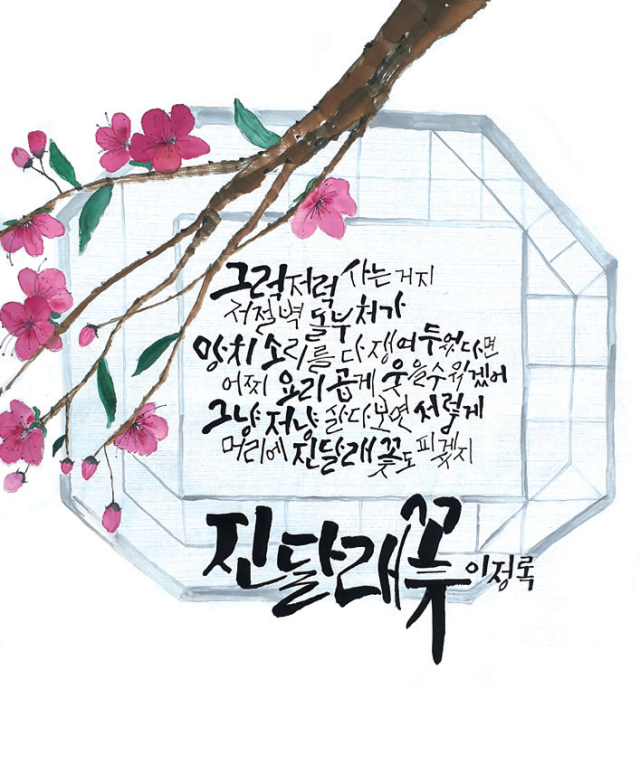 그럭저럭 사는 거지
저 절벽 돌부처가
망치 소리를 다 쟁여두었다면
어찌 요리 곱게 웃을 수 있겠어
그냥저냥 살다 보면 저렇게
머리에 진달래꽃도 피겠지
진달래꽃 이정록